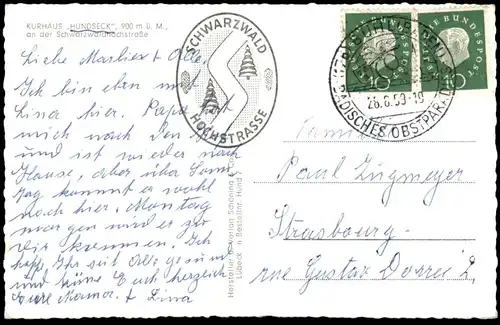 KURHAUS „HUNDSECK", 900 m ü. M.,
an der Schwarzwaldhochstraße
Liebe Marlies + Olle.
Ich bin eben mit
Lina hier. Papa hat
mich nach den
und ist wieder nach
Hause, aber über Sonn-
tag kommt er wohl
noch hier, Montag
morgen wird er zu
Dir kommen. Ich
hoff, Ihr seid alle gesund
und küsse Euch herzlich
Eure Mama + Lina
SCHWARZWALD
HOCHSTRASSE
DEUTSCHE BUNDESPOST
10
DEUTSCHE BUNDESPOST
10
26.8.59-19
BADISCHES OBSTPARADIES
Hersteller
Schöning
Lübeck
Familie
Paul Zugmeyer
Strasbourg-
rue Gustav Dorrée 2,